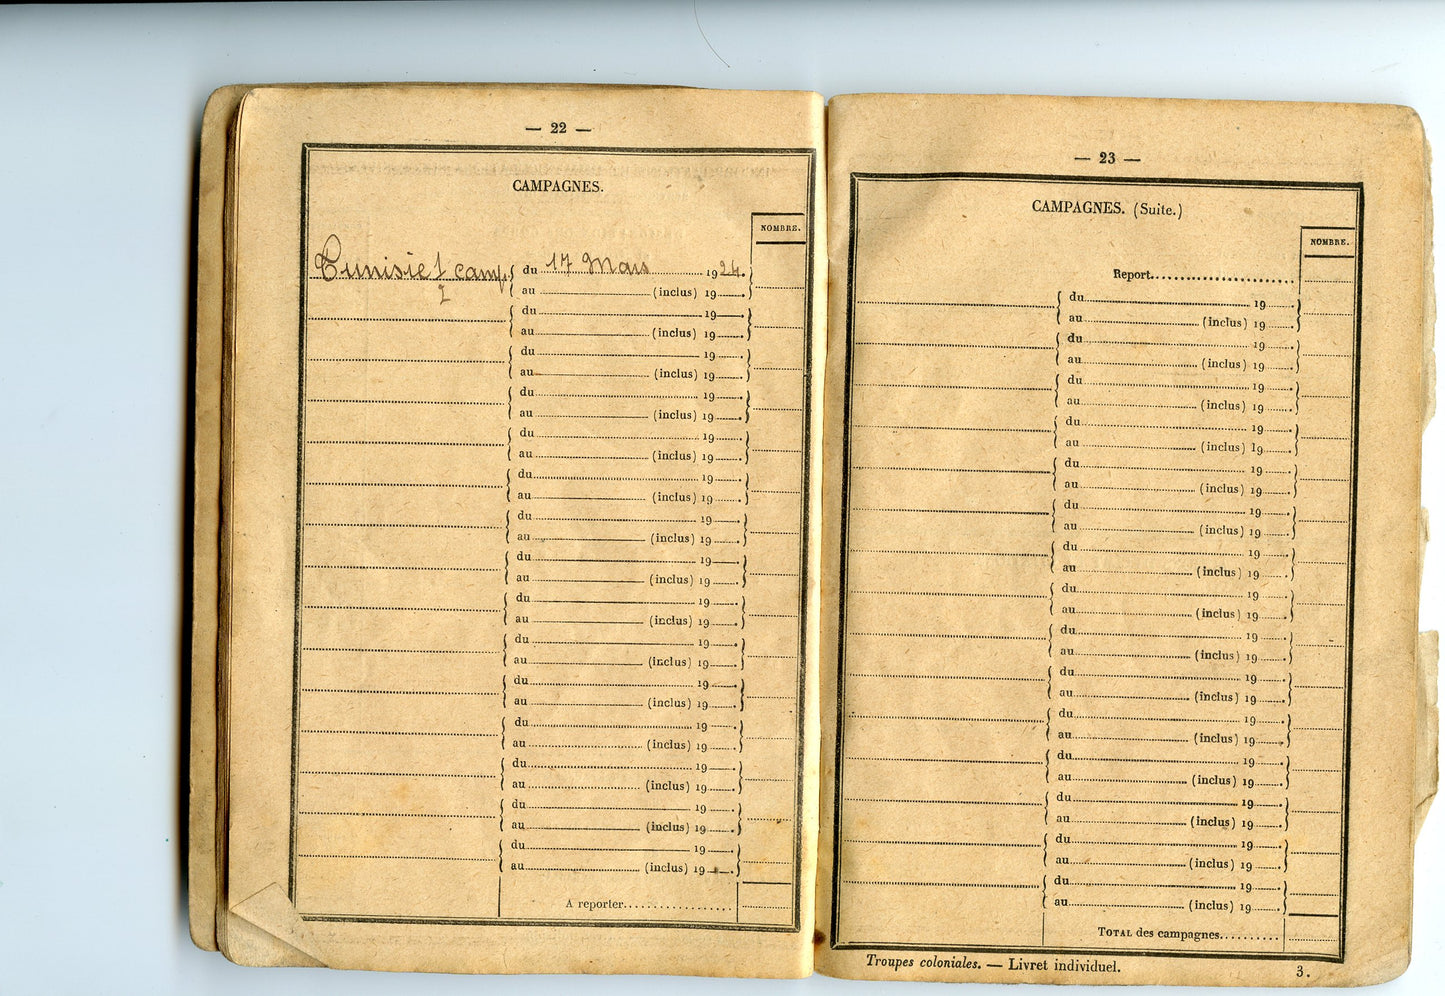 — 22 —
CAMPAGNES.
NOMBRE.
Tunisie 1/2 camp. du 17 Mars 1924.
au (inclus) 19
du 19
au (inclus) 19
du 19
au (inclus) 19
du 19
au (inclus) 19
du 19
au (inclus) 19
du 19
au (inclus) 19
du 19
au (inclus) 19
du 19
au (inclus) 19
du 19
au (inclus) 19
du 19
au (inclus) 19
du 19
au (inclus) 19
du 19
au (inclus) 19
du 19
au (inclus) 19
du 19
au (inclus) 19
du 19
au (inclus) 19
A reporter
— 23 —
CAMPAGNES. (Suite.)
NOMBRE.
Report
du 19
au (inclus) 19
du 19
au (inclus) 19
du 19
au (inclus) 19
du 19
au (inclus) 19
du 19
au (inclus) 19
du 19
au (inclus) 19
du 19
au (inclus) 19
du 19
au (inclus) 19
du 19
au (inclus) 19
du 19
au (inclus) 19
du 19
au (inclus) 19
du 19
au (inclus) 19
du 19
au (inclus) 19
du 19
au (inclus) 19
du 19
au (inclus) 19
TOTAL des campagnes
Troupes coloniales. — Livret individuel. 3.